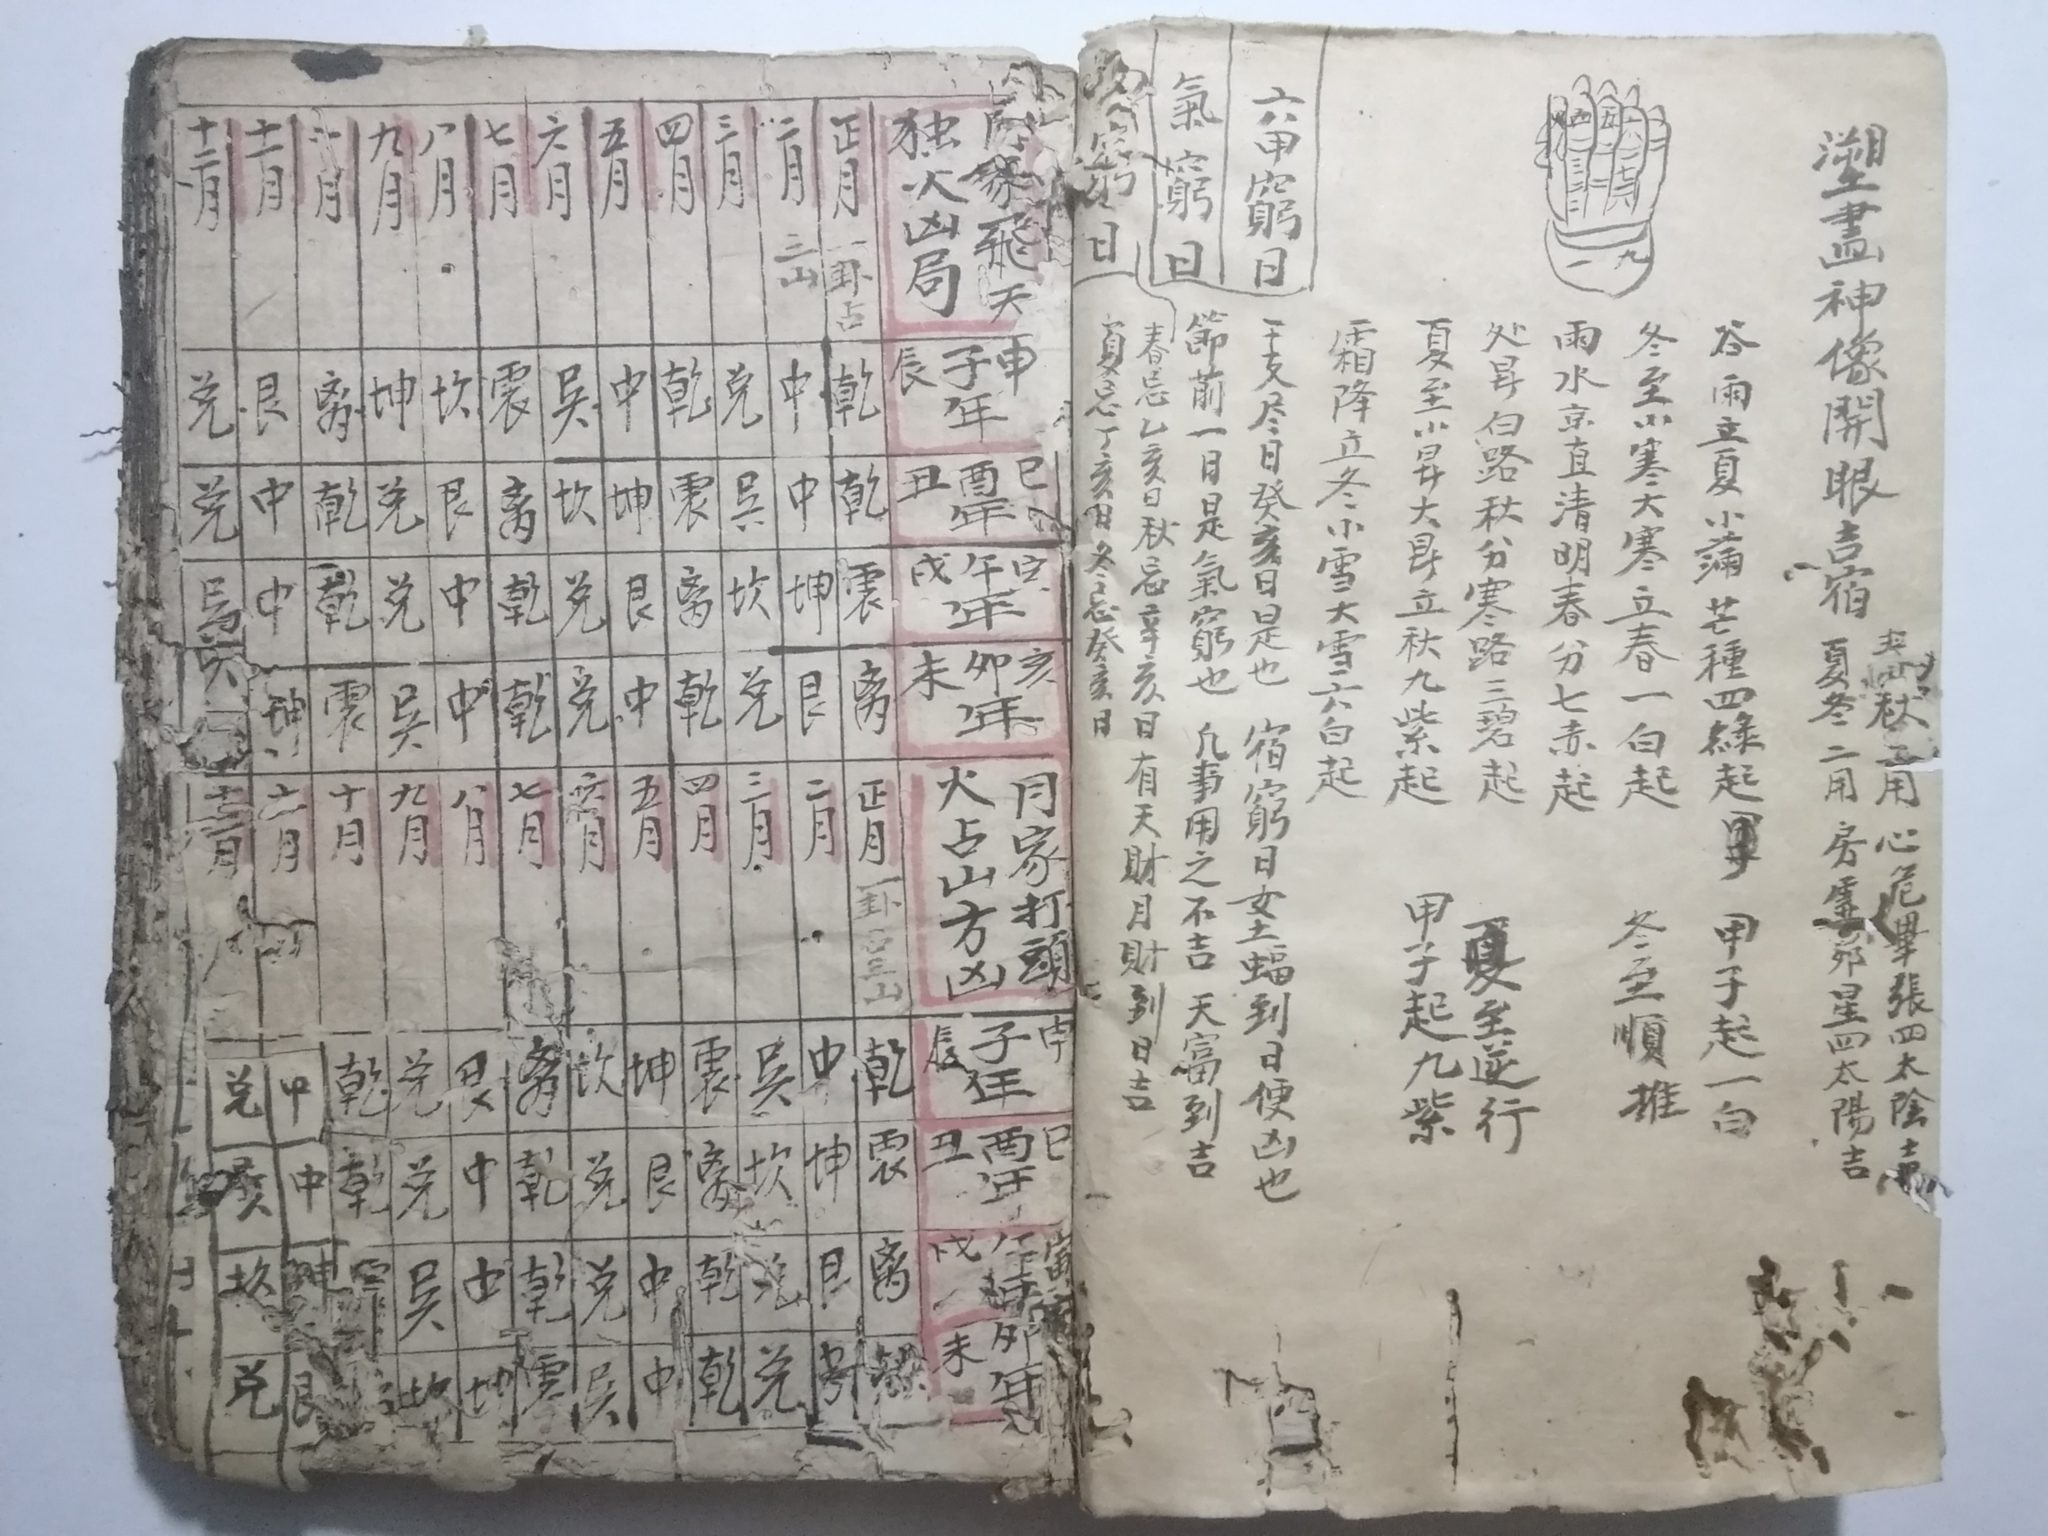 塑畫神像開眼吉宿
秋二用 心危畢張四太陰吉
夏冬二用 房虛昴星四太陽吉
谷雨立夏小滿芒種四綠起 甲子起一白
冬至小寒大寒立春一白起 冬至順推
雨水京直清明春分七赤起
处暑白路秋分寒路三碧起 夏至逆行
夏至小暑大暑立秋九紫起 甲子起九紫
霜降立冬小雪大雪六白起
五
一 九
六甲窮日
干支尽日癸亥日是也 宿窮日女土蝠到日便凶也
氣窮日
節前一日是氣窮也 凡事用之不吉 天富到吉
窮日
春忌乙亥日秋忌辛亥日 有天財月財到日吉
夏忌丁亥日冬忌癸亥日
家飛天
独火凶局
申子年辰
巳酉年丑
午年戌
亥卯年未
正月 一卦占 乾 乾 震 离
二月 三山 中 中 坤 艮
三月 兑 吴 坎 兑
四月 乾 震 离 乾
五月 中 坤 艮 中
六月 吴 坎 兑 兑
七月 震 离 乾 乾
八月 坎 艮 中 中
九月 坤 兑 兑 吴
十月 离 乾 乾 震
十一月 艮 中 中 坤
十二月 兑 兑
月家打頭
火占山方凶
申子年辰
巳酉年丑
寅午年戌
卯年未
正月 一卦占三山 乾 震 离
二月 中 坤 艮
三月 吴 坎 兑 兑
四月 震 离 乾 乾
五月 坤 艮 中 中
六月 坎 兑 兑 吴
七月 离 乾 乾 震
八月 艮 中 中 坤
九月 兑 兑 吴 坎
十月 乾 乾 震
十一月 中 中 坤 艮
十二月 兑 坎 兑